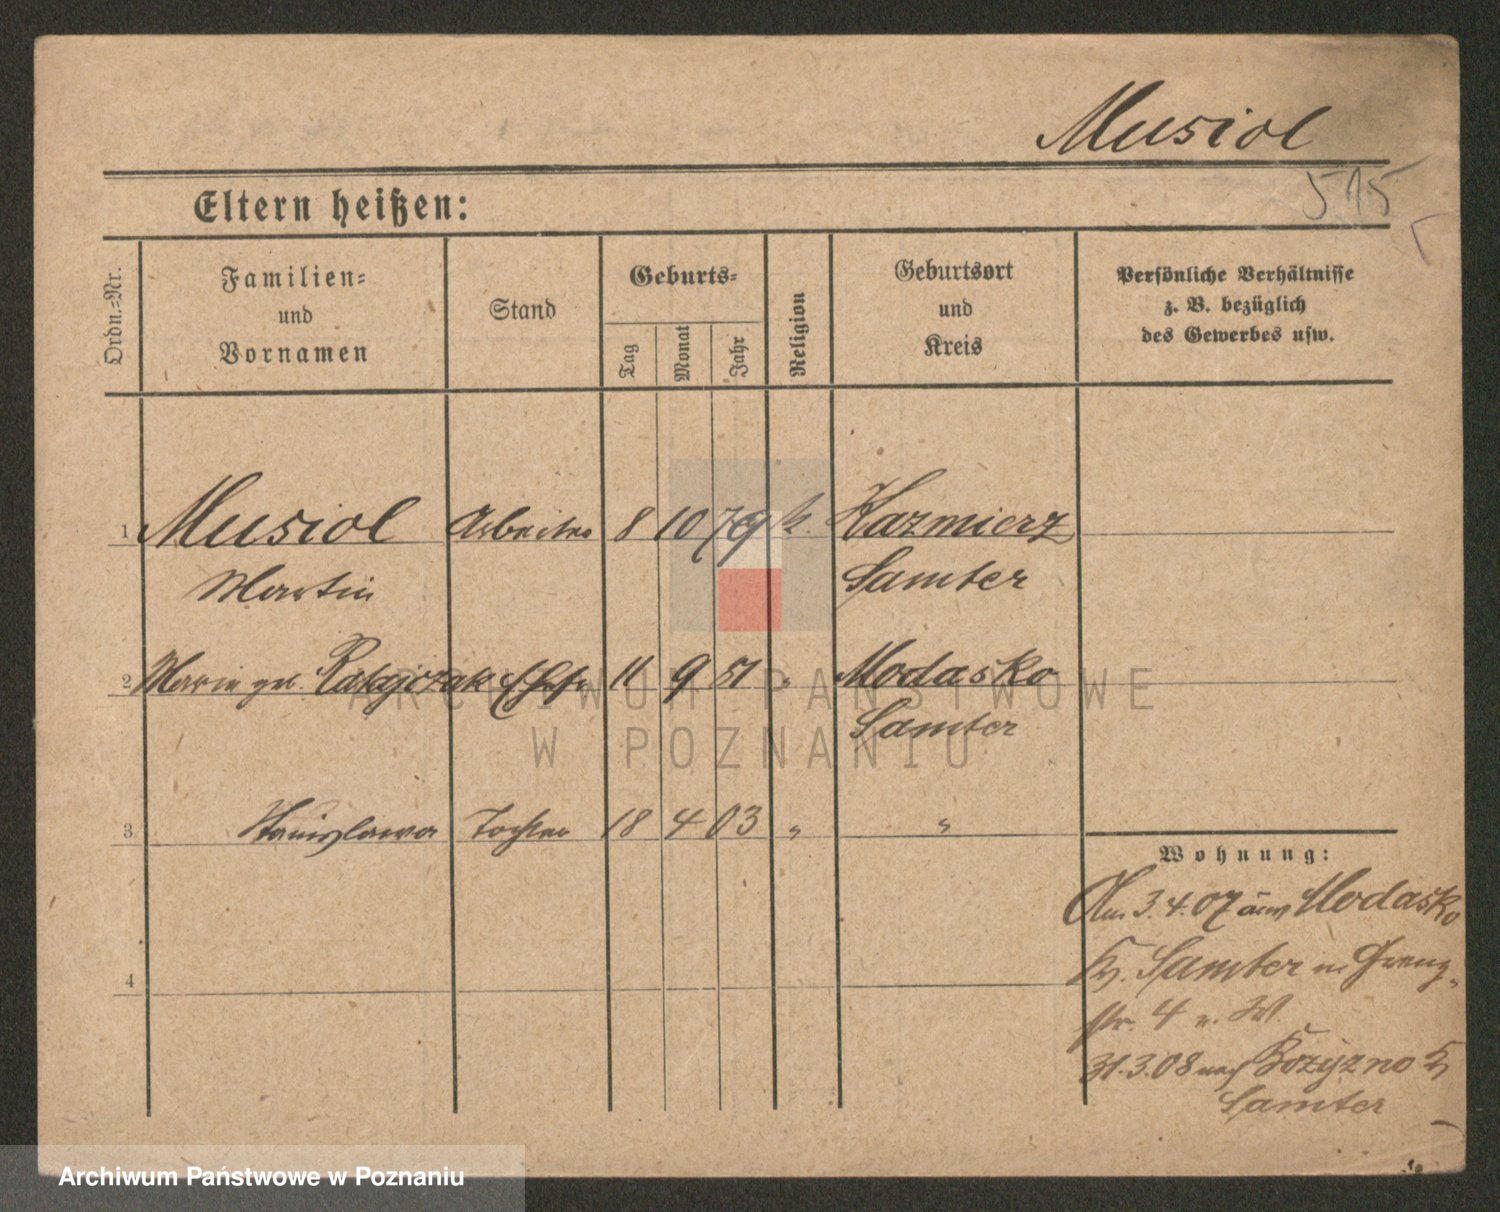 Musiol
515
Eltern heißen:
Ordn.=Nr.
Familien=
und
Vornamen
Stand
Geburts=
Tag
Monat
Jahr
Religion
Geburtsort
und
Kreis
Persönliche Verhältnisse
z. B. bezüglich
des Gewerbes usw.
1 Musiol Arbeiter 8 10 79 k. Kazmierz
Martin Samter
2 Marie geb. Ratajczak Ehefr 11 9 81 " Modasko
Samter
3 Stanislawa Tochter 18 4 03 " "
4
Wohnung:
Am 3.4.07 aus Modasko
Kr. Samter n. Grenz-
str. 4 v. W.
31.3.08 nach Bozyzno Kr
Samter
ARCHIWUM PAŃSTWOWE
W POZNANIU
Archiwum Państwowe w Poznaniu